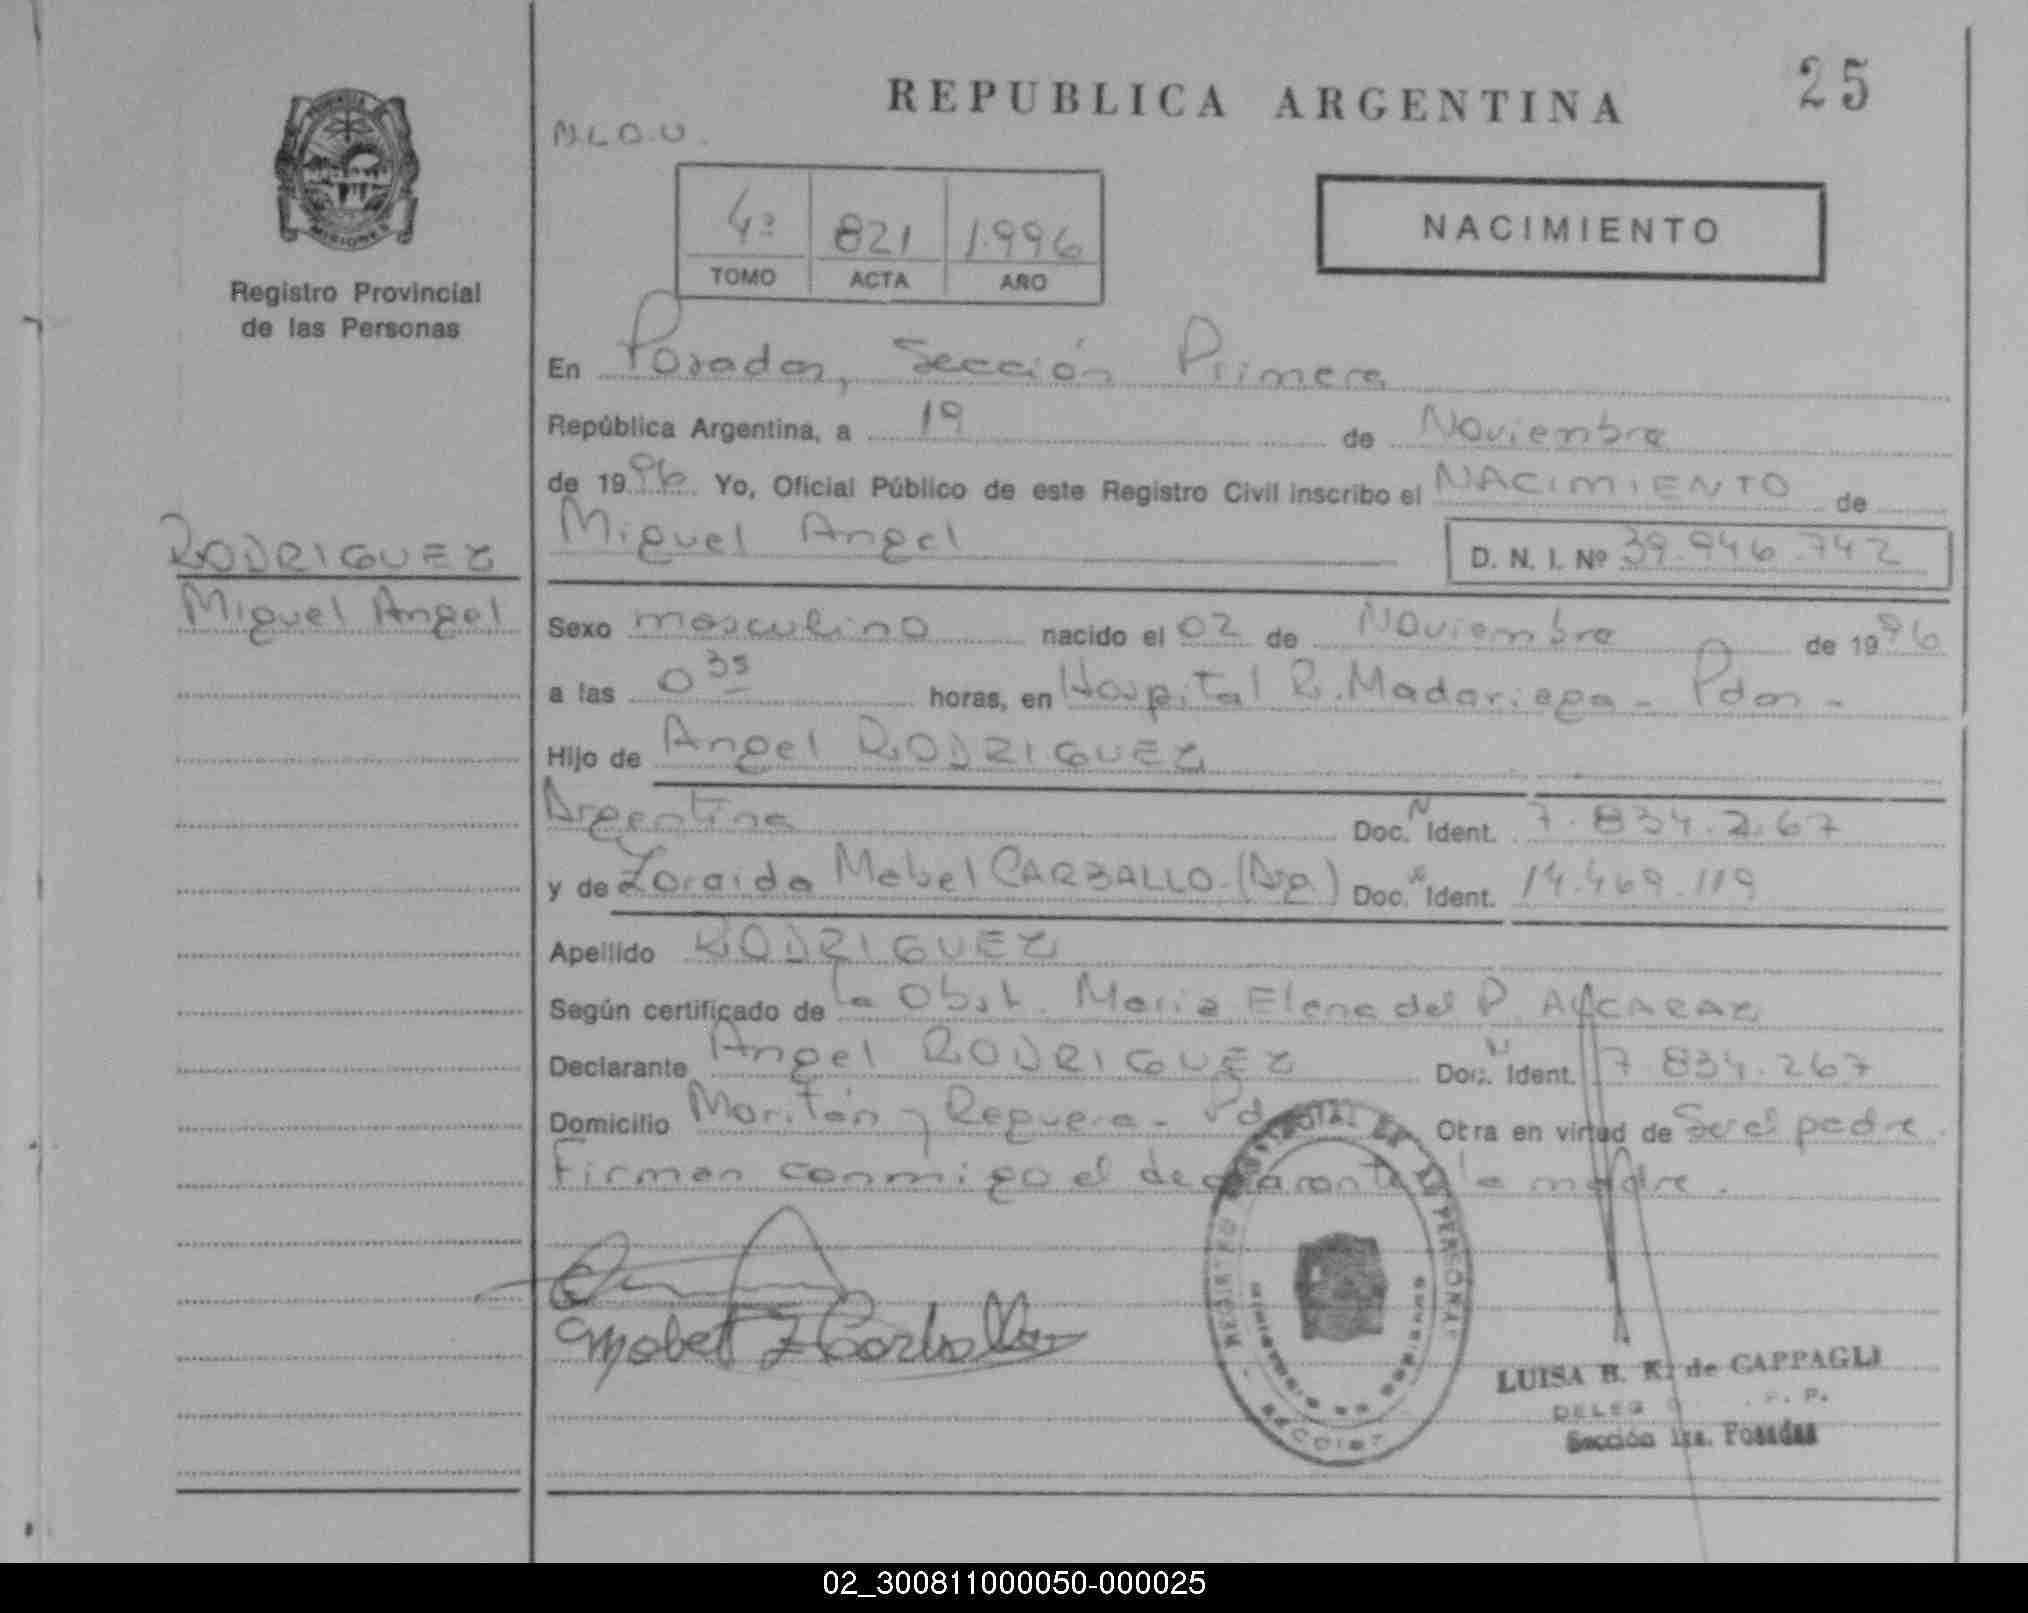 REPUBLICA ARGENTINA
25
N.L.O.U.
4º 821 1.996
TOMO ACTA AÑO
NACIMIENTO
MISIONES
Registro Provincial
de las Personas
RODRIGUEZ
Miguel Angel
En Posadas, Sección Primera
República Argentina, a 19 de Noviembre
de 1996 Yo, Oficial Público de este Registro Civil inscribo el NACIMIENTO de
Miguel Angel D. N. I. Nº 39.946.742
Sexo masculino nacido el 02 de Noviembre de 1996
a las 0 35 horas, en Hospital R. Madariaga - Pdas -
Hijo de Angel RODRIGUEZ
Argentina Doc. N Ident. 7.834.267
y de Zoraida Mabel CARBALLO (Arg) Doc. Ident. 14.469.119
Apellido RODRIGUEZ
Según certificado de la Obst. Maria Elena del P. ALCARAZ
Declarante Angel RODRIGUEZ Doc. N Ident. 7.834.267
Domicilio Moritán y Reguera - Pdas Otra en virtud de Ser el padre.
Firman conmigo el declarante y la madre.
Mabel Z Carballo
REGISTRO PROVINCIAL DE LAS PERSONAS
MINISTERIO DE GOBIERNO
SECCION
LUISA B. K. de CAPPAGLI
Sección 1ra. Posadas
02_300811000050-000025